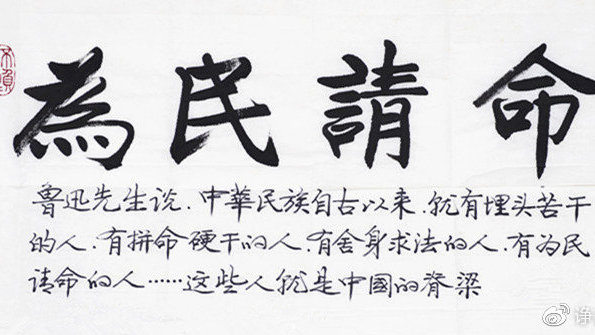 為民請命
鲁迅先生说.中華民族自古以来.就有埋头苦干
的人.有拼命硬干的人.有舍身求法的人.有为民
请命的人……这些人就是中國的脊梁